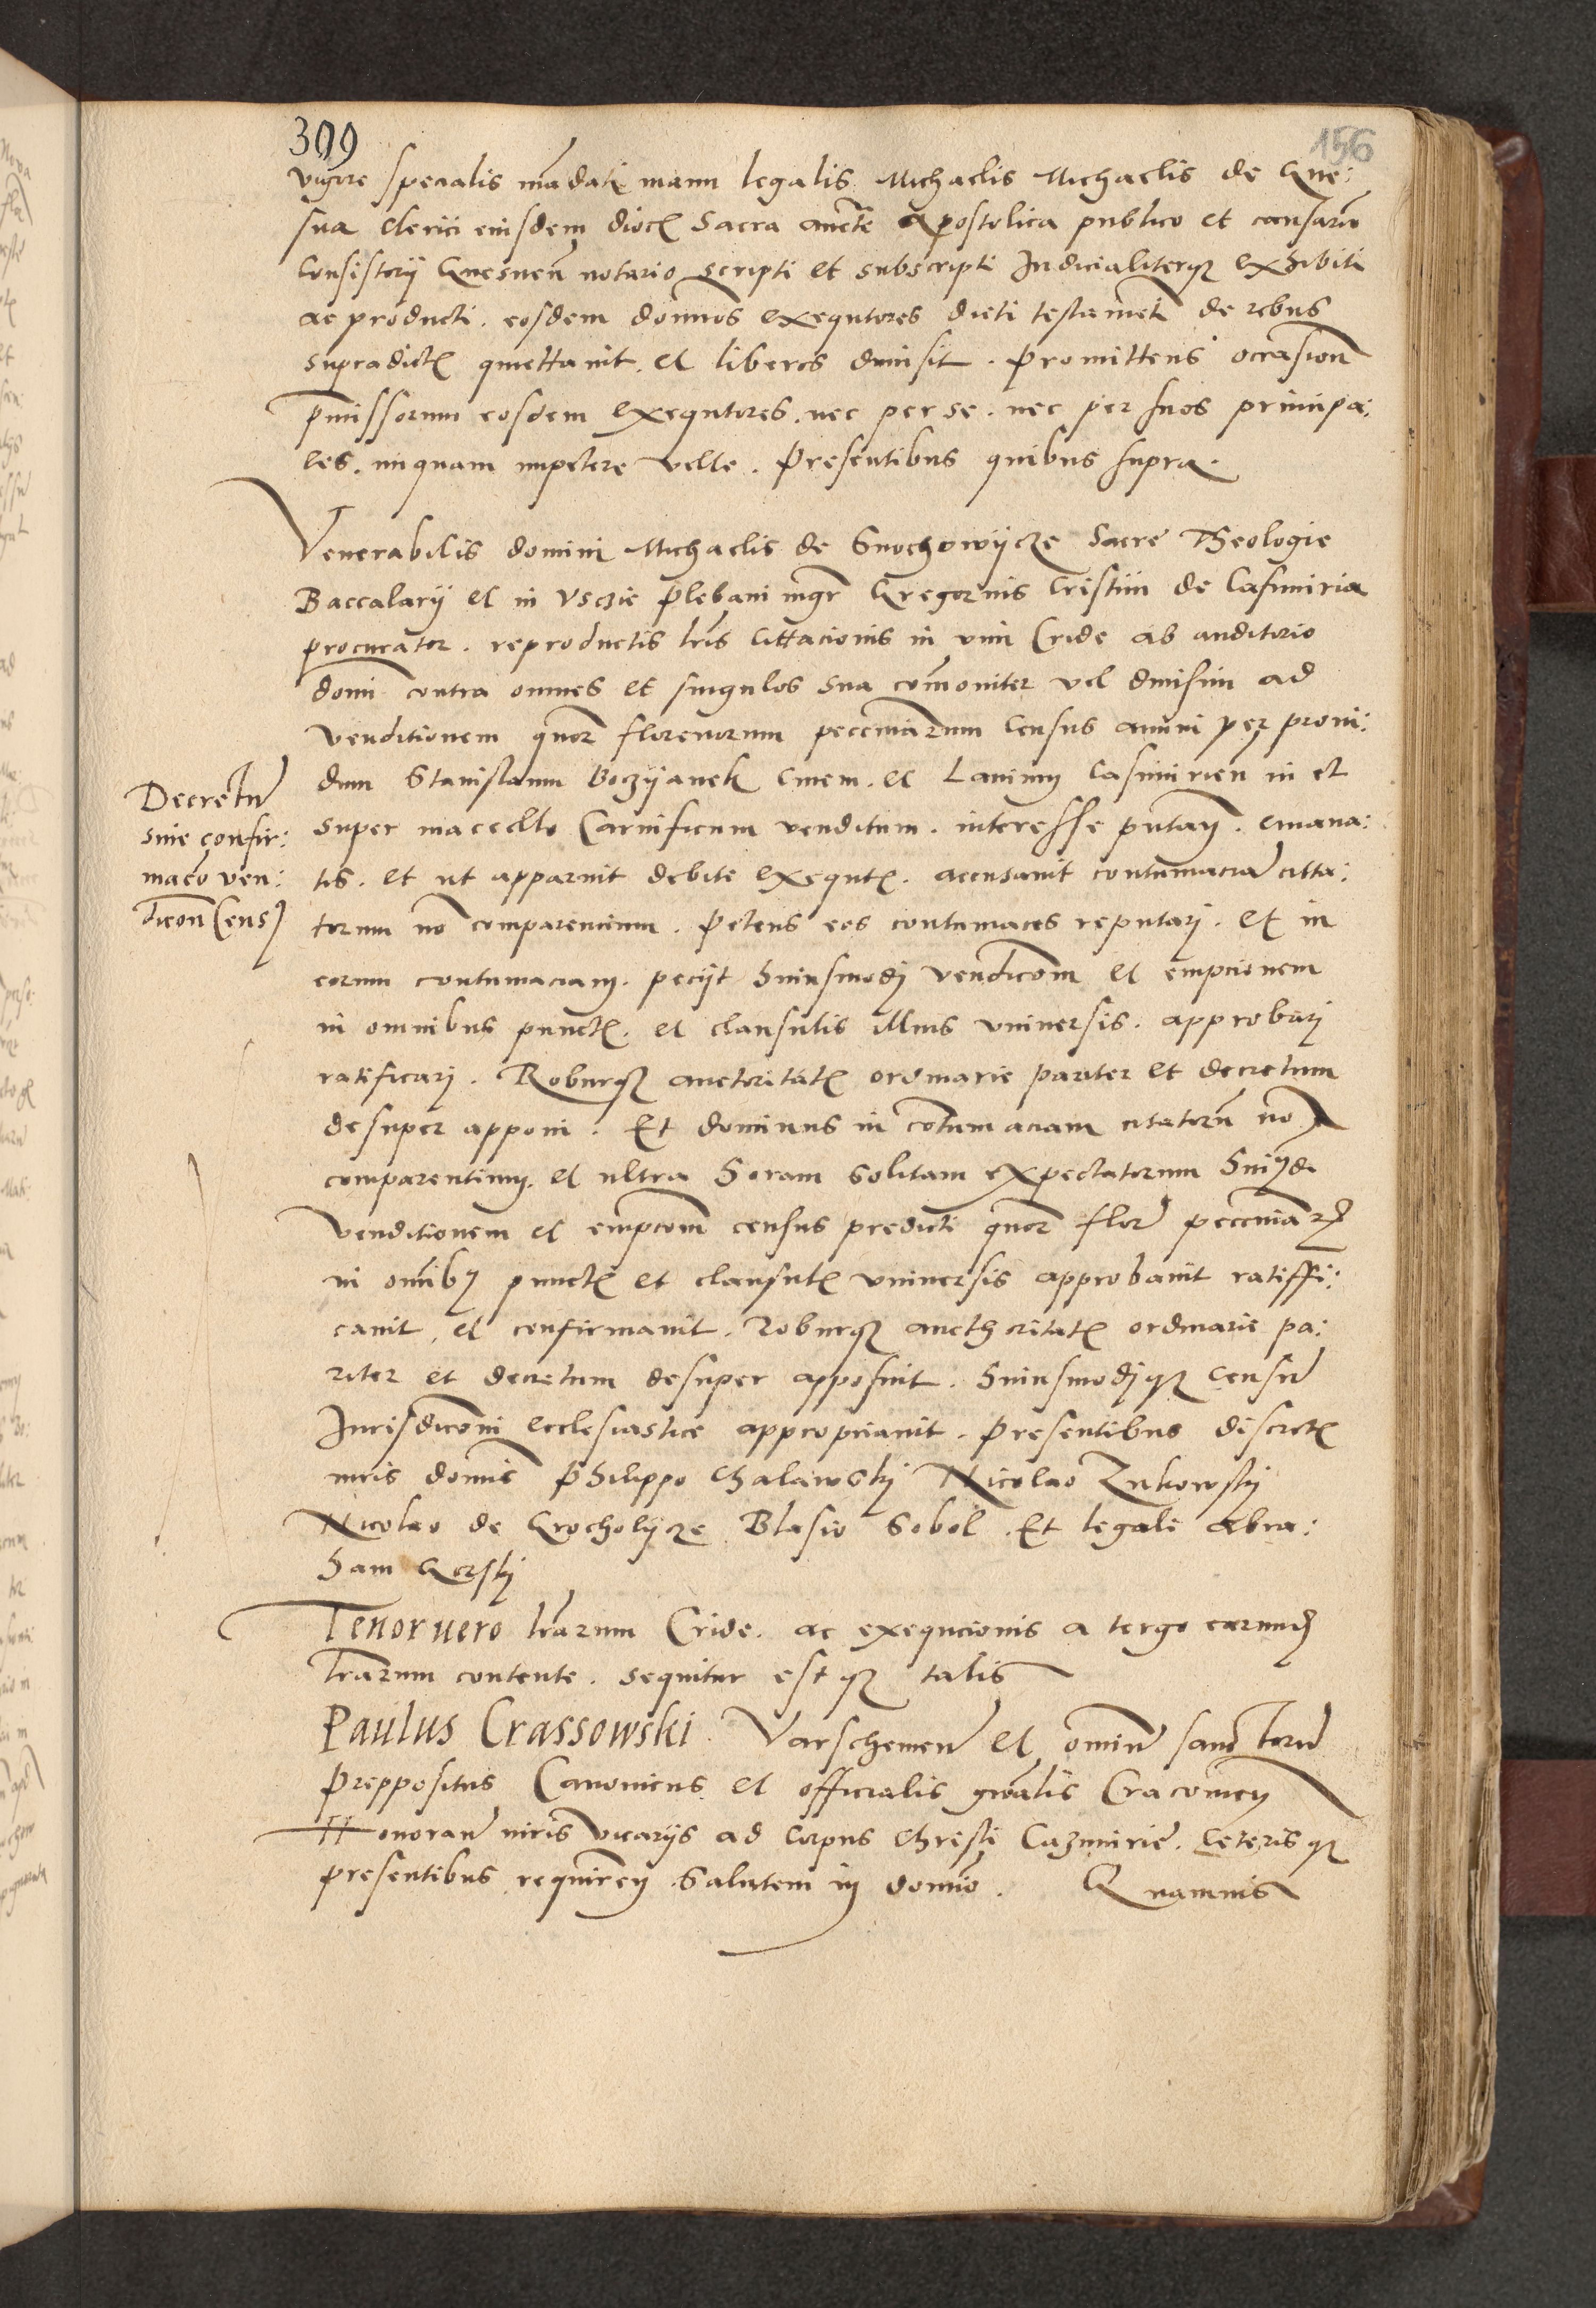 309
156
vigore specialis mādati manu legalis Michaelis Michaelis de Gne:
sna Clerici eiusdem dioc Sacra aucte Apostolica publico et causarū
Consistorij Gnesnen notario scripti et subscripti Judicialiterqz exhibiti
ac producti. eosdem domnos exequtores dicti testamēti de rebus
supradict quiettauit. et liberos dimisit. Promittens occasion
pmissorum eosdem exequtores. nec per se. nec per suos principa:
les. unquam impetere velle. Presentibus quibus supra.
Venerabilis domini Michaelis de Gnochowijcze Sacre Theologie
Baccalarij et in Usczie plebani mgr Gregorius Cristini de Casimiria
procurator. reproductis lris Cittacionis in vim Cride ab auditorio
domi contra omnes et singulos sua cōmoniter vel diuisim ad
venditionem quor florenorum peccuniarum Census annui per proui:
dum Stanislaum Boczijanek Ciuem. et Lanium Casimirien in et
super maccello Carnificum venditum. interesse putan. emana:
tis. et ut apparuit debite exequt. accusauit contumaciā citta:
torum nō comparencium. Petens eos contumaces reputari. et in
eorum contumaciam. pecijt huiusmodj vendicōm et empcionem
in omnibus punct. et clausulis illius vniuersis. approbari
ratificarj. Roburqz auctoritat ordinarie pariter et decretum
desuper apponi. Et dominus in cōtumaciam citatorū nō
comparentium. et ultra horam solitam expectatorum huiusdi
venditionem et empcōm census predicti quor flor peccuniar
in omibz punct et clausul vniuersis approbauit ratiffi:
cauit, et confirmauit. Roburqz aucthoritat ordinarie pa:
riter et decretum desuper apposuit. huiusmodjqz Censū
Jurisdicōni ecclesiastice appropriauit. Presentibus discret
uiris domis Philippo Chalawskj Nicolao Zukowskj
Nicolao de Grocholijcze Blasio Sobol. Et legali Abra:
ham Gorskj
Decretū
siue confir:
macō ven:
dicōn Cens
Tenor uero lrarum Cride. ac exequcionis a tergo earund
lrarum contente. sequitur estqz talis
Paulus Crassowski. Varschemen et omniū sanctorū
Preppositus Canonicus et officialis gnālis Cracouien
Honoran uiris vicarijs ad Corpus Christi Cazmirie. Ceterisqz
presentibus requiren Salutem in domīo. Quamuis